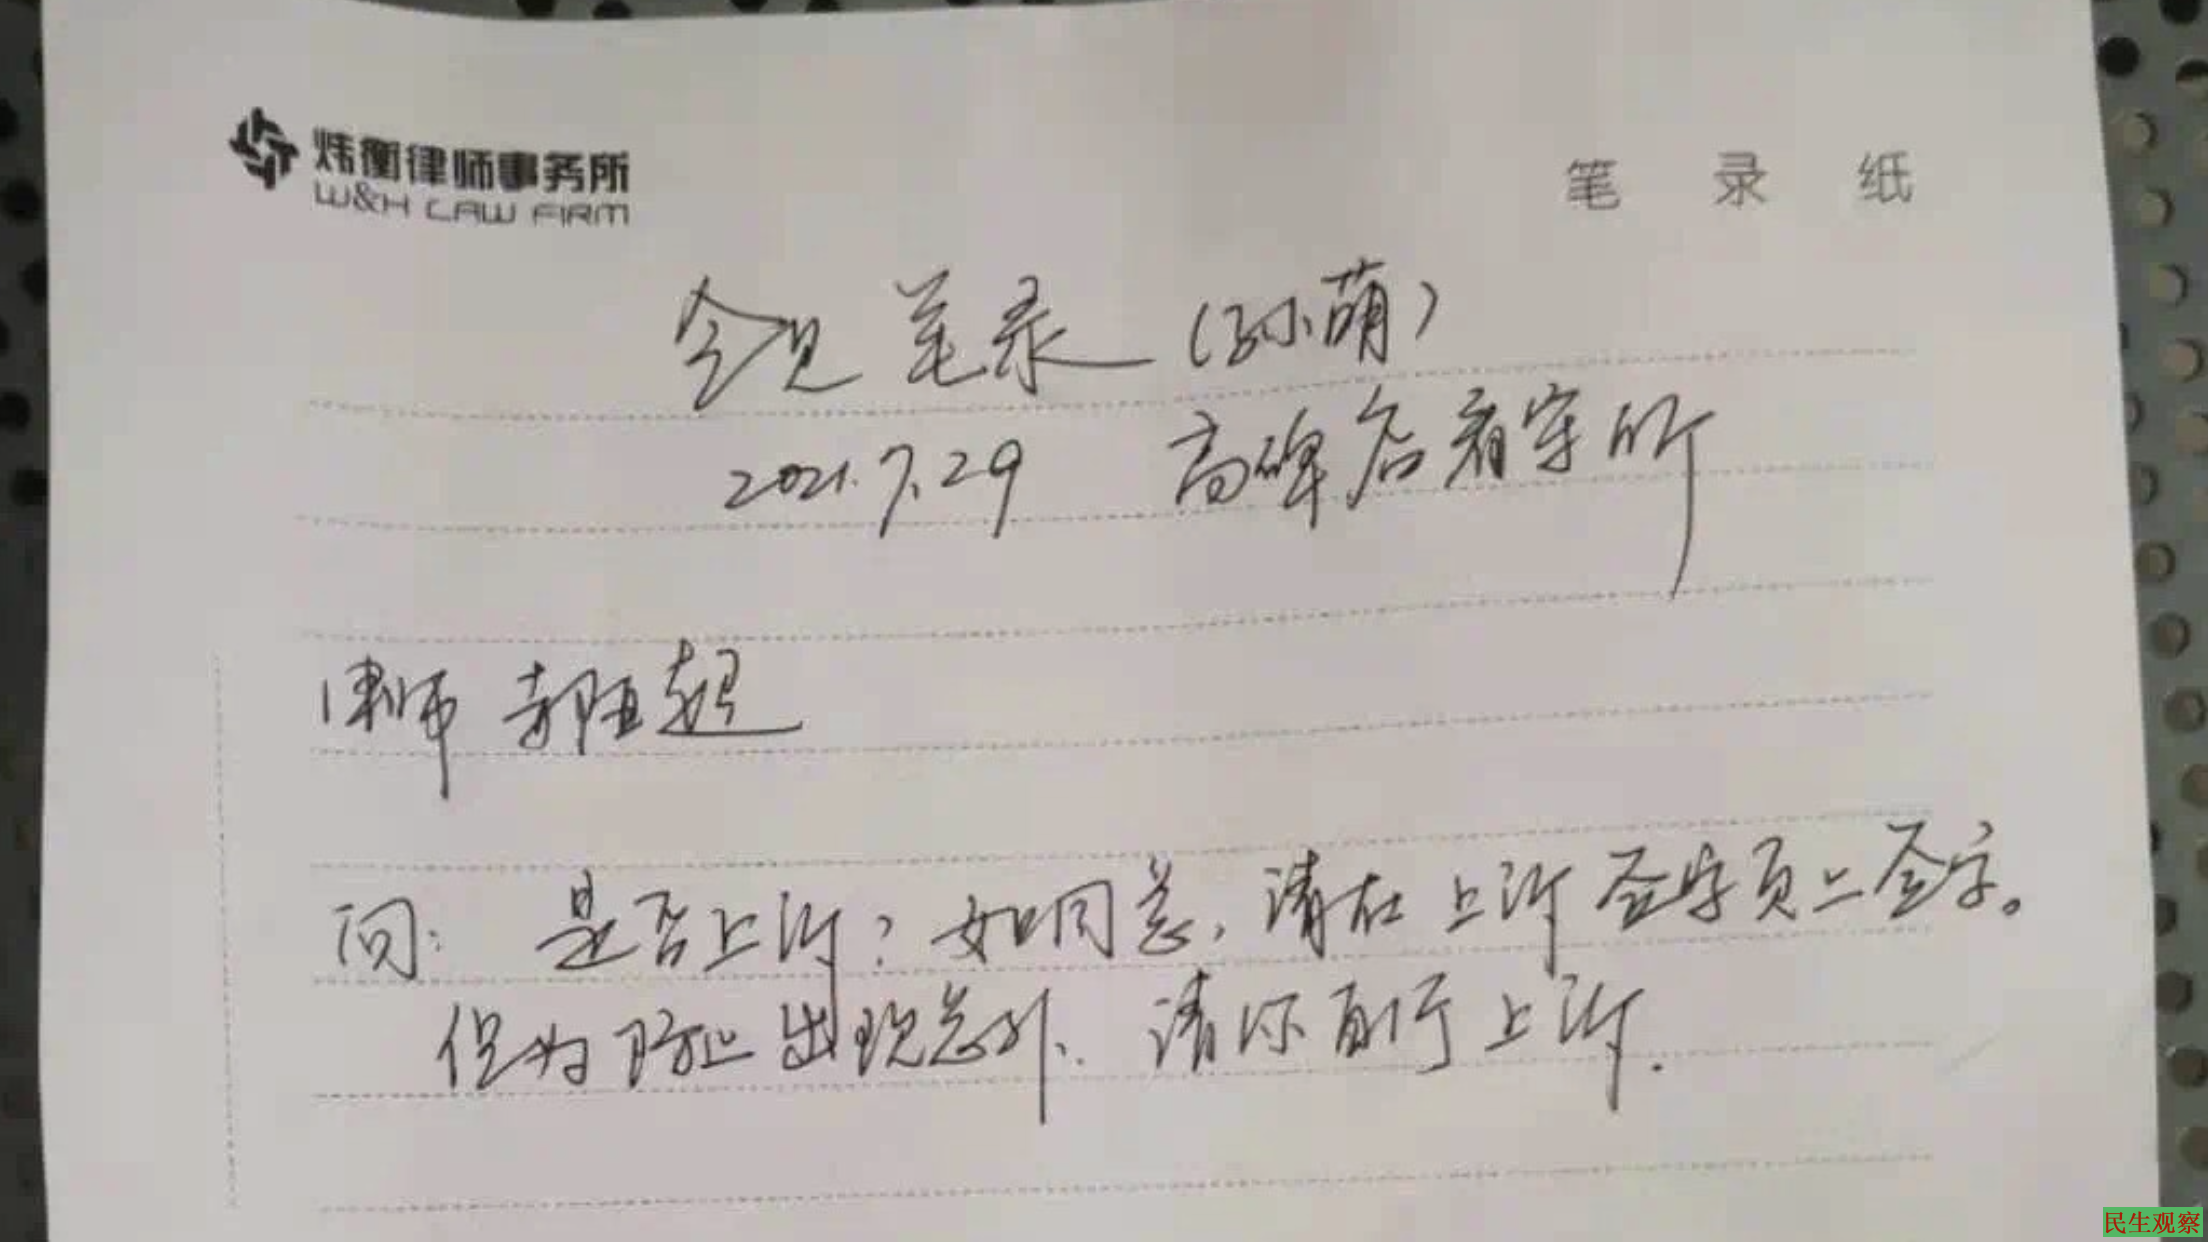 炜衡律师事务所
W&H LAW FIRM
笔 录 纸
会见笔录(孙萌)
2021.7.29 高碑店看守所
律师 郭 超
问: 是否上诉? 如同意, 请在上诉签字页上签字。
但为防止出现意外、请你自行上诉.
民生观察